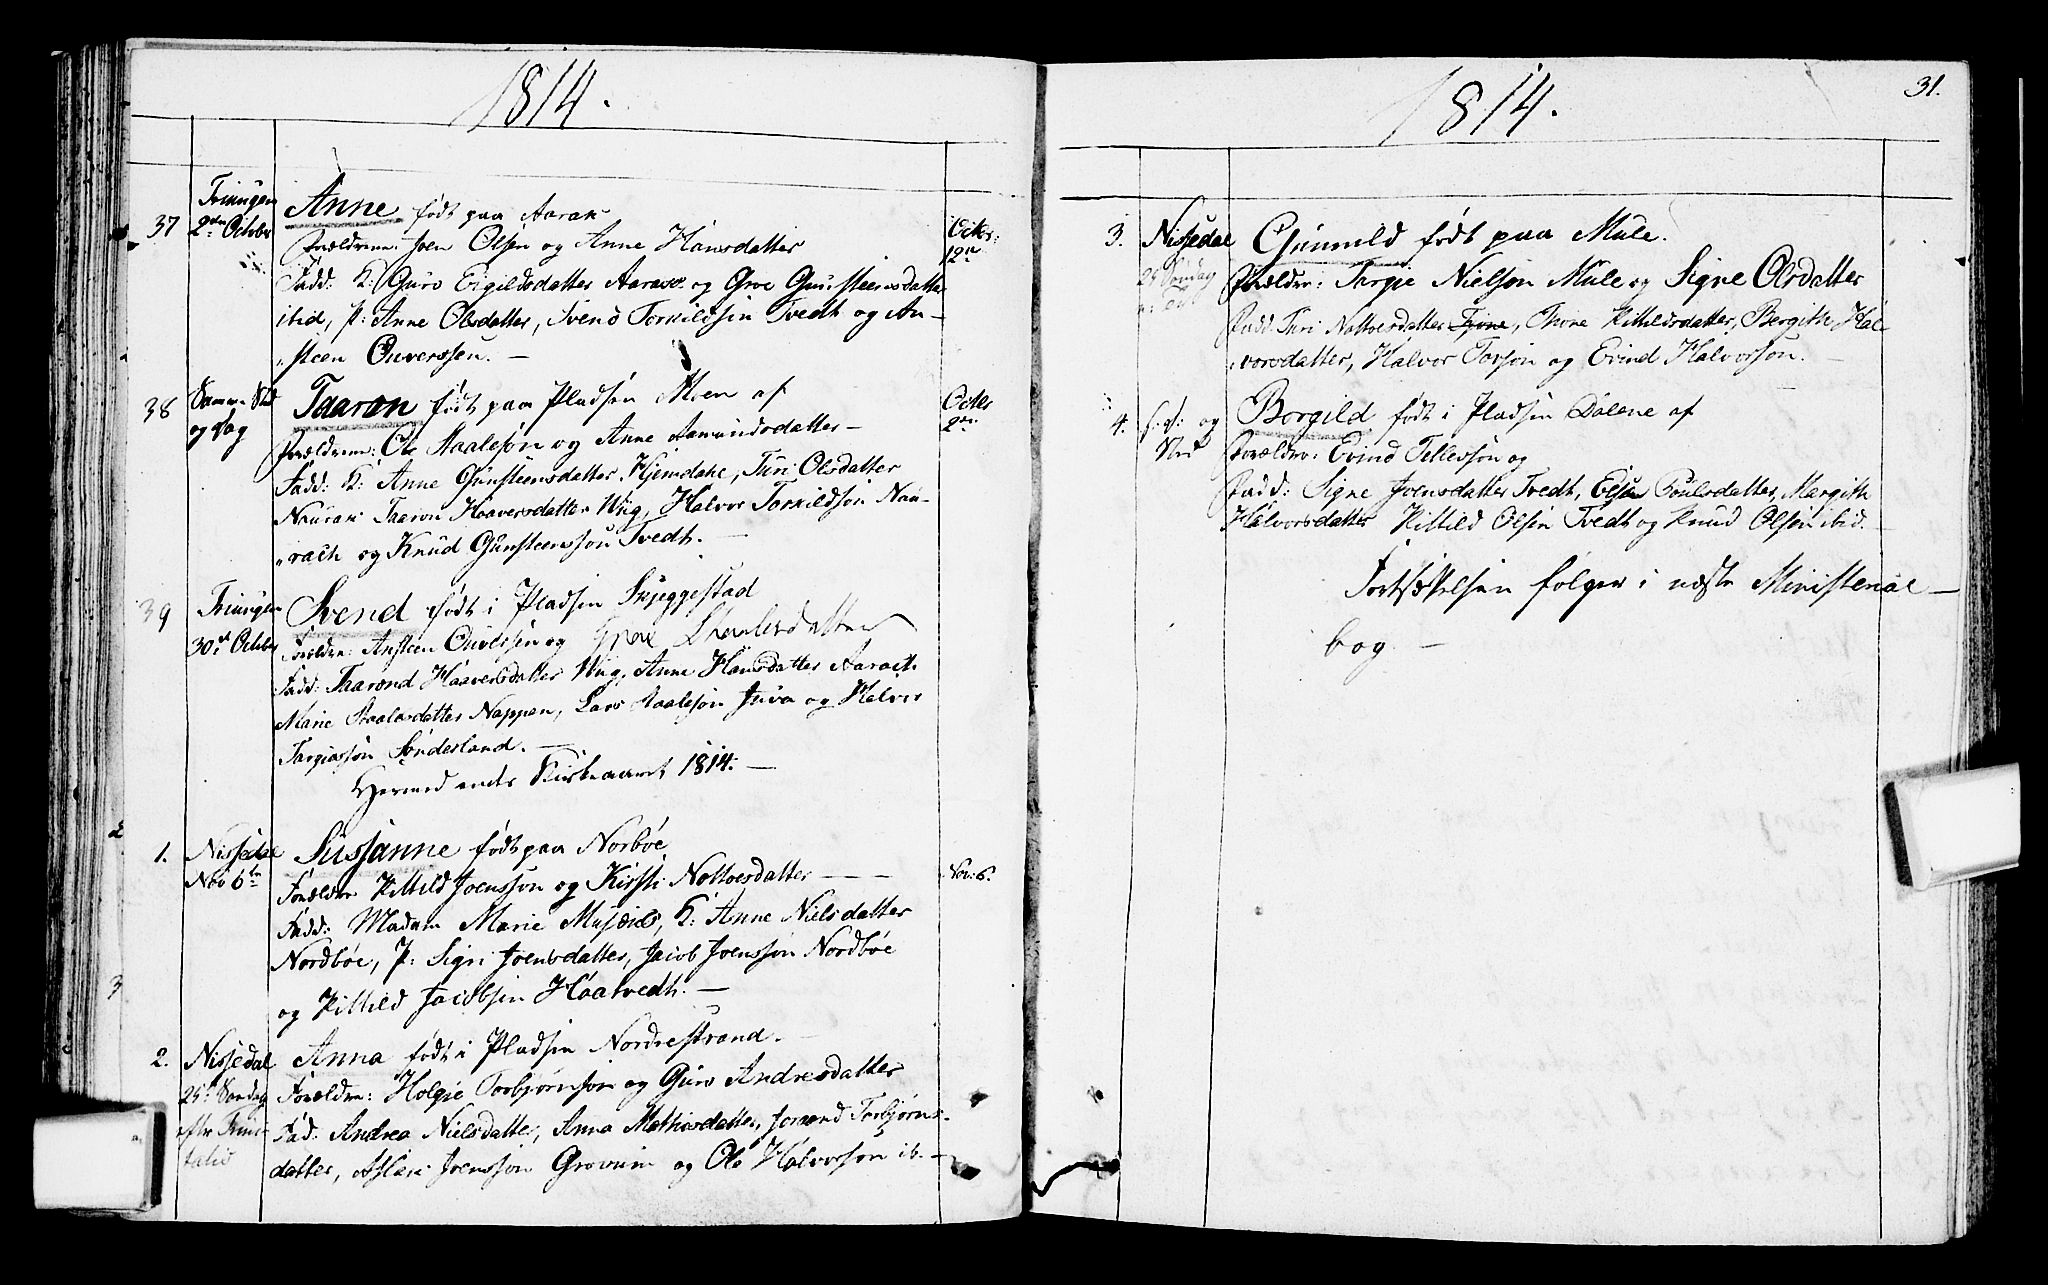 1814.
37
Treungen
2den October
Anne født paa Aarak
Forældrene: Joen Olsen og Anne Hansdatter
Fadd: K: Guro Eigildsdatter Aarak og Groe Gunsteensdatter
ibid, P: Anne Olsdatter, Svend Torkildsen Tvedt og An-
steen Onverssen. —
Octbr:
2den
38
Samme Sted
og Dag
Taaran født paa Pladsen Moen af
Forældrene: Ole Staalesøn og Anne Aamundsdatter —
Fadd: K: Anne Gunsteensdatter Hjemdahl, Turi Olsdatter
Naurak Taaron Haaversdatter Wiig, Halvor Torkildsøn Nau-
rach og Knud Gunsteensson Tvedt. —
Octbr
2den
39
Treungen
30te October
Svend født i Pladsen Skjeggestad
Forældre: Ansteen Onversen og Groe
Fadd: Taarond Haaversdatter Wiig, Anne Hansdatter Aarach
Marie Staalesdatter Nappen, Lars Staalesøn Juva og Halvor
Targiussøn Sønderland. —
Hermed endes Kirkeaaret 1814. —
1.
Nissedal
Nov 6te
Sussanne født paa Norbøe
Forældre Kittild Joenssøn og Kirsti Nottoesdatter — —
Fadd: Madam Marie Musæus, K: Anne Nielsdatter
Nordbøe, P: Sigri Joensdatter, Jacob Joenssøn Nordbøe
og Kittild Jacobsen Haatvedt. —
Nov: 6.
2.
Nissedal
25de Søndag
efter Trini-
tatis
Anna født i Pladsen Nordrestrand. —
Forældre: Holgie Torbjørnsøn og Guro Andresdatter
Fad: Andrea Nielsdatter, Anna Mathisdatter, Jorand Torbjørns-
datter, Aslak Joenssøn Grovum og Ole Halvorsøn ib. —
1814.
31.
3.
Nissedal
25 Søndag
Gunuld født paa Mule.
Forældre: Targie Nielsøn Mule og Signe Olsdatter
Fadd. Turi Nottoesdatter, Thone Kittilsdatter, Bergith Hal-
vorsdatter, Halvor Torsøn og Evind Halvorsøn. —
4.
s: d: og
Sted
Borgild født i Pladsen Dalene af
Forældre: Evind Tellefsøn og
Fadd: Signe Joensdatter Tvedt, Elsæ Poulsdatter, Margith
Halvorsdatter Kittild Olsen Tvedt og Knud Olsøn ibid. —
Fortsættelsen følger i næste Ministerial —
bog. —